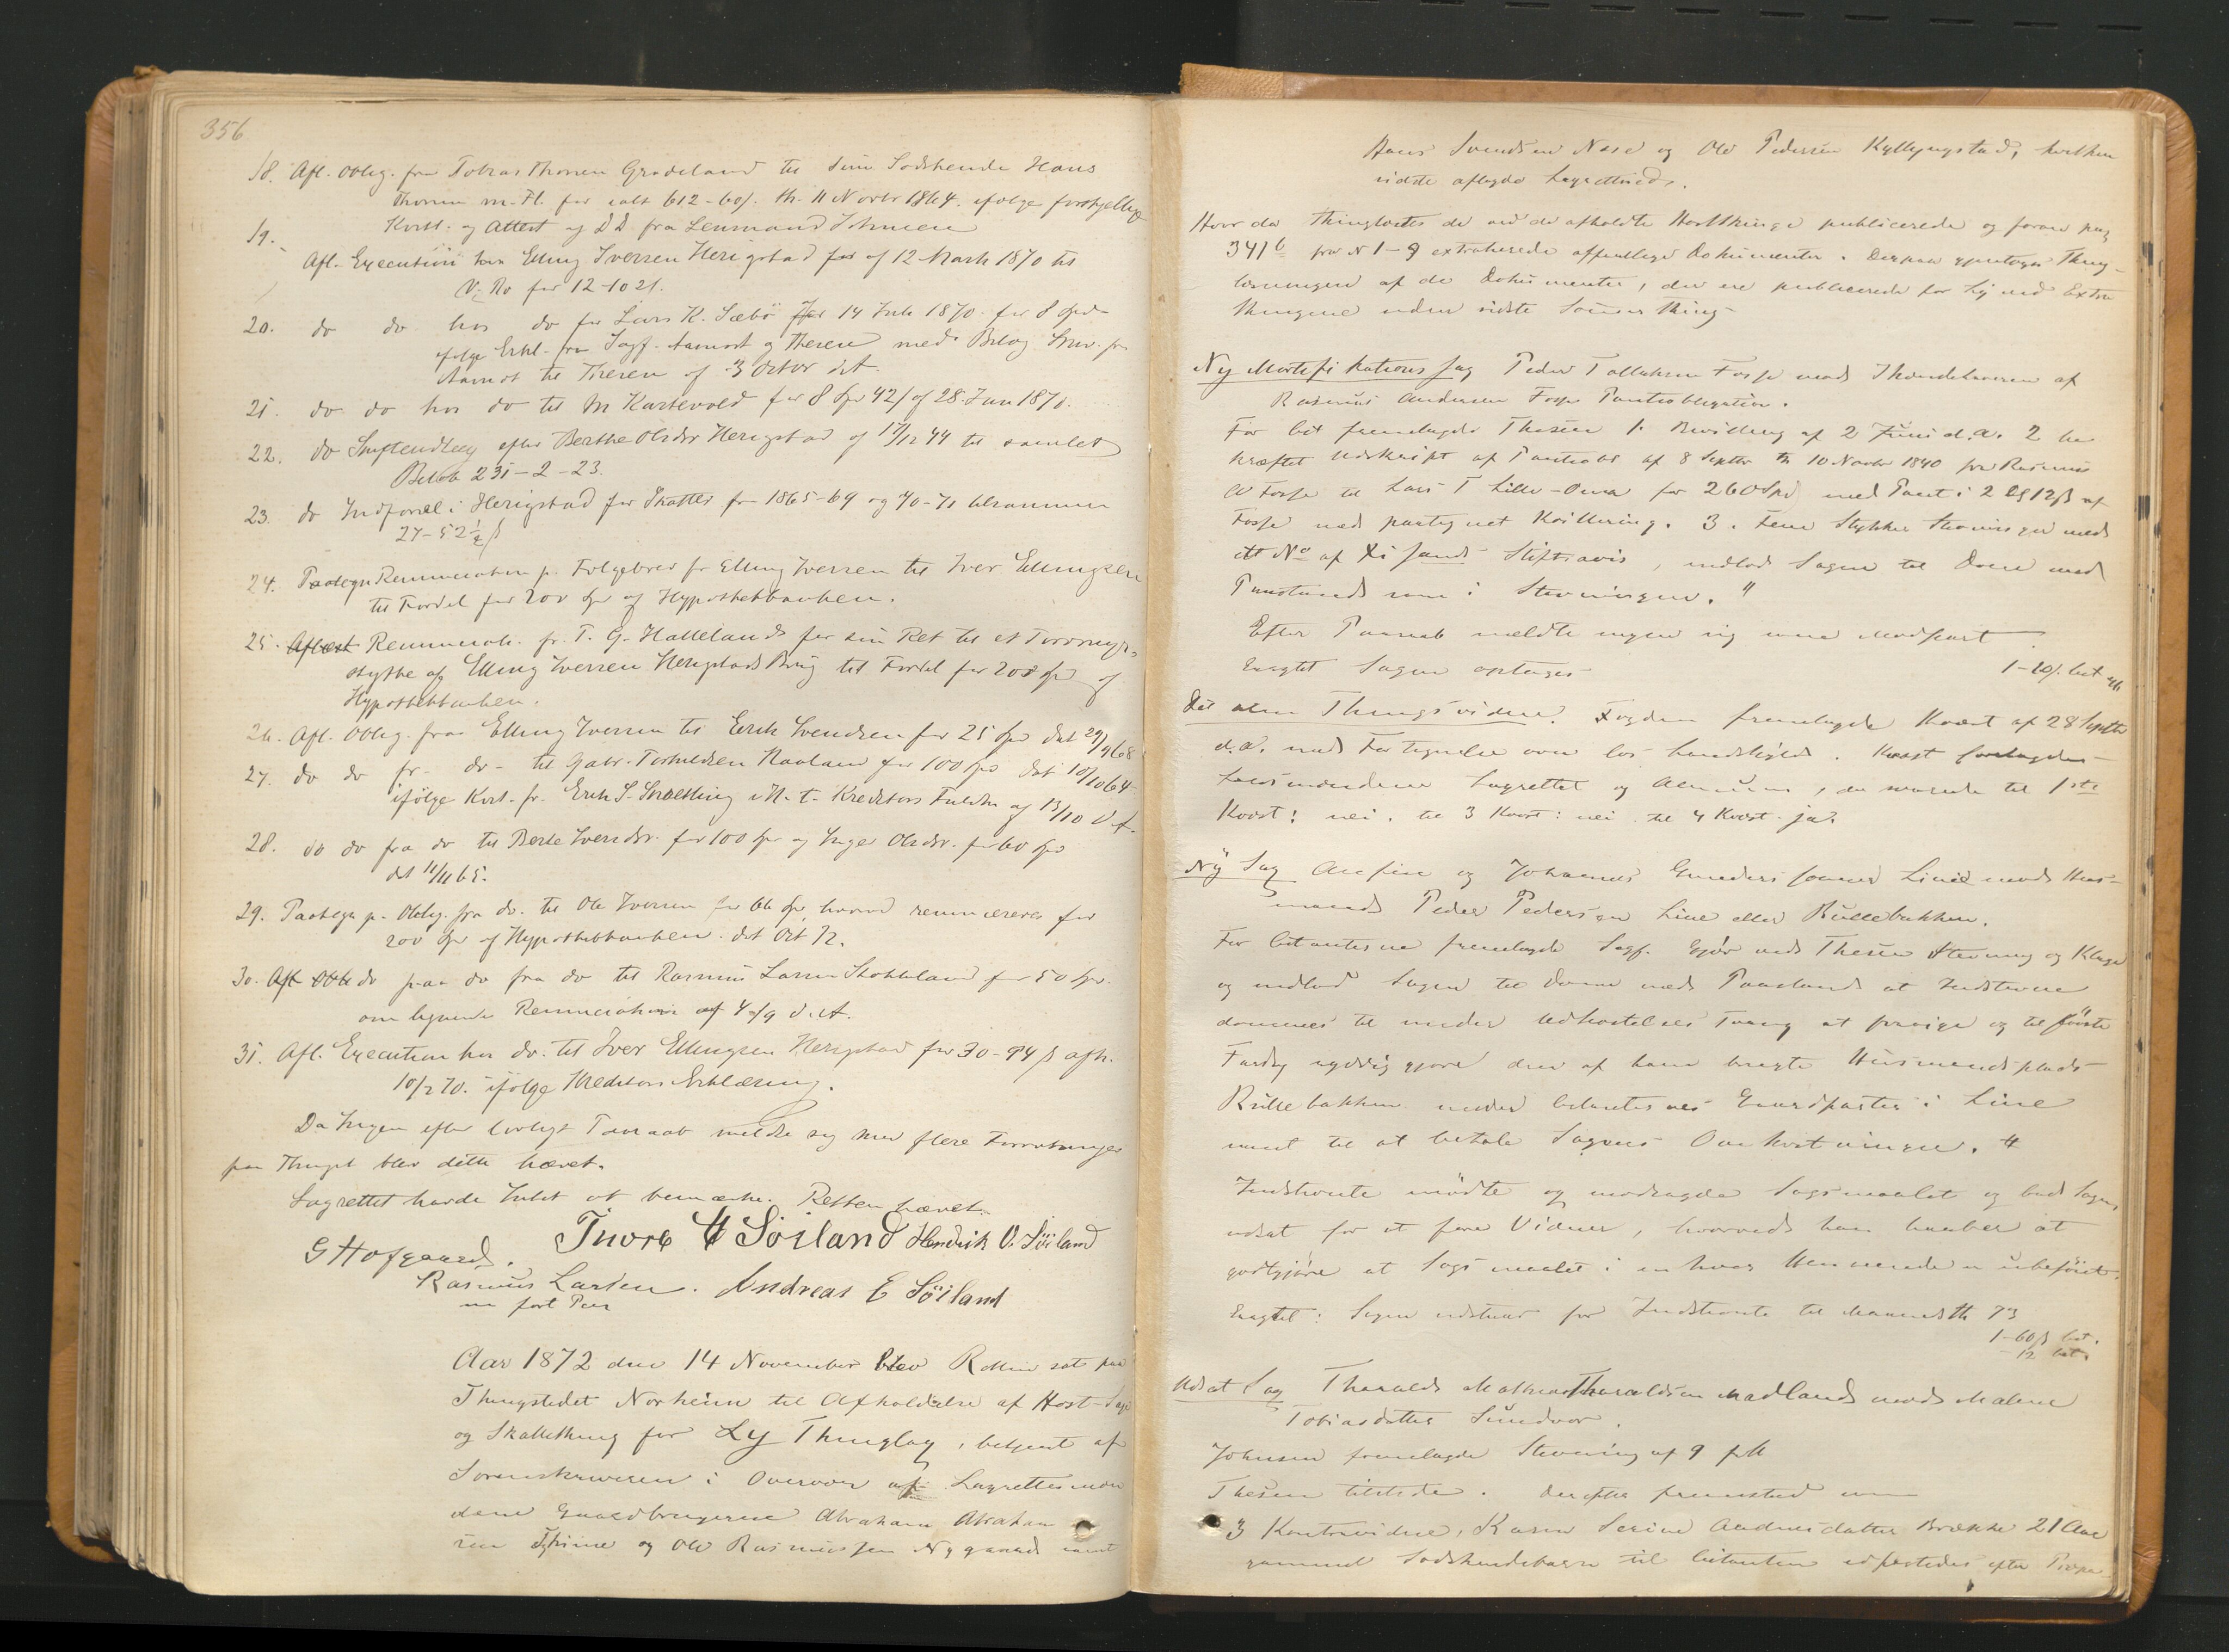 356
18. Afl. Oblig. fra Tobias Thorsen Gradeland til sine Sødskende Hans
Thorsen m. Fl. for ialt 612-60/. th. 11 Novbr 1864. ifølge forskjellige
Kvitt. og Attest af DD fra Lensmand Johnsen
19.
Afl. Execution hos Elling Iversen Herigstad af 12 Marts 1870 til
for 12-1021.
20. do do hos do for Lars K. Sæbö 14 Juli 1870 for 8 Spd
ifølge Erkl. fra Sagf. Aamodt og Thesen med Bilag Skriv. fra
Aamodt til Thesen af 3 Octbr d.A.
21. do do hos do til M Kartevold for 8 Spd 42/ af 28. Jun 1870.
22. do efter Berthe Olsdr Herigstad af 17/12 44 til samlet
Beløb 231-2-23.
23. do Indførsel i Herigstad for Skatter for 1865-69 og 70-71 tilsammen
27-52½ ß
24. Paategn Renunciation p. Folgebrev fr Elling Iversen til Iver Ellingsen
til Fordel for 200 Spd af Hypothekbanken.
25. Aflæst Renunciati. fr. T. G. Hallelands for sin Ret til et Torvmyr-
stykke af Elling Iversen Herigstads Brug til Fordel for 200 Spd af
Hypothekbanken.
26. Afl. Oblig. fra Elling Iversen til Eerik Svendsen for 25 Spd dat 29/9 68
27. do do fr. do - til Gabr. Torkildsen Haaland for 100 Spd dat 10/10 64
ifølge Kvit. fr. Erik S. i H. t. Kreditors Fuldm af 13/10 d.A.
28. do do fra do til Berte Iversdr. for 100 Spd og Inger Olsdr. for 60 Spd
dat 11/11 65.
29. Paategn p. Oblig. fra do. til Ole Iversen for 66 Spd, hvorved renunceres for
200 Spd af Hypothekbanken. dat Oct 72.
30. Afl Obl do paa do fra do til Rasmus Larsen Stokkeland for 50 Spd.
om lignende Renunciation af 4/9 d.A.
31. Afl. Execution hos do. til Iver Ellingsen Herigstad for 30-94 ß afh.
10/2 70. ifølge Kreditors Erklæring.
Da Ingen efter lovligt Paaraab meldte sig med flere Forretninger
paa Thinget blev dette hævet.
Lagrettet havde Intet at bemærke. Retten hævet.
G Hofgaard. Thore H Söiland Hendrik O. Söiland
Rasmus Larsen. Andreas E Söiland
m fört Pen
Aar 1872 den 14 November blev Retten sat paa
Thingstedet Norheim til Afholdelse af Høst- Sage
og Skattething for Ly Thinglag, betjent af
Sorenskriveren i Overvær af Lagrettesmæn
dene Gaardbrugerne Abraham Abraham
sen Thime og Ole Rasmussen Nygaard samt
Hans Svendsen Næse og Ole Pedersen Kyllingstad, hvilken
sidste aflagde Lagrettesed.
Hvor da thinglæstes de ved de afholdte Høstthinge publicerede og foran pag
341b fra N 1-9 extraherede offentlige Dokumenter. Derpaa gjentoges Thing-
læsningen af de Dokumenter, der ere publicerede for Ly ved Extra
thingene siden sidste Sommerthing
Ny Mortifikations Sag Peder Tollaksen Fosse mod Ihændehaveren af
Rasmus Andersen Fosse Pantobligation.
For Cit fremlagde Thesen 1. Bevilling af 2 Juni d.A. 2 be
kræftet Udskrift af Pantobl af 8 Septbr th 10 Novbr 1840 fra Rasmus
A Fosse til Lars T Lille-Oma for 260 Spd med Pant i 2 12ß af
Fosse med paategnet Kvittering. 3. Fem Stykker Stævninger med
et No af Xisands Stiftsavis, indlod Sagen til Doms med
Paastand som i Stævningen."
Efter Paaraab meldte ingen sig som Modpart
Eragtet Sagen optages 1-20/. bet
Det alm Thingsvidne. Fogden fremlagde Kvæst af 28 Septbr
d.A. med Fortegnelse over løs Handskyld. Kvæst forelagdes
Lensmændene Lagrettet og Almuen, der svarede til 1ste
Kvæst: nei. til 3 Kvæst: nei til 4 Kvæst. ja.
Ny Sag Arnfin og Johannes Gundersønner Line mod Hus-
mand Peder Pedersen Line eller Rullebakken.
For Citanterne fremlagde Sagf. Egör ved Thesen Stævning og Klage
og indlod Sagen til Doms med Paastand at Indstevnte
dømmes til under Udkastelses Tvang at fravige og til første
Fardag ryddiggjøre den af ham brugte Husmandsplads
Rullebakken under Citanternes Gaardparter i Line
samt til at betale Sagens Omkostninger. "
Indstevnte mødte og modsagde Sagsmaalet og bad Sagen
udsat for at føre Vidner, hvorved han haaber at
godtgjøre at Sagsmaalet i enhver Henseende er ubeføiet.
Eragtet: Sagen udsættes for Indstevnte til Maanedsth 73
1-60ß bet.
- 12 bet.
Udsat Sag Tharalds Mathias Tharaldsen Madland mod Malene
Tobiasdatter Sundvor.
Johnsen fremlagde Stevning af 9
Thesen tilstede. Derefter fremstod som
3 Kontravidne, Karen Serine Andersdatter Brække 21 Aar
gammel Sødskendebarn til Citanten edfæstedes efter Præpa-